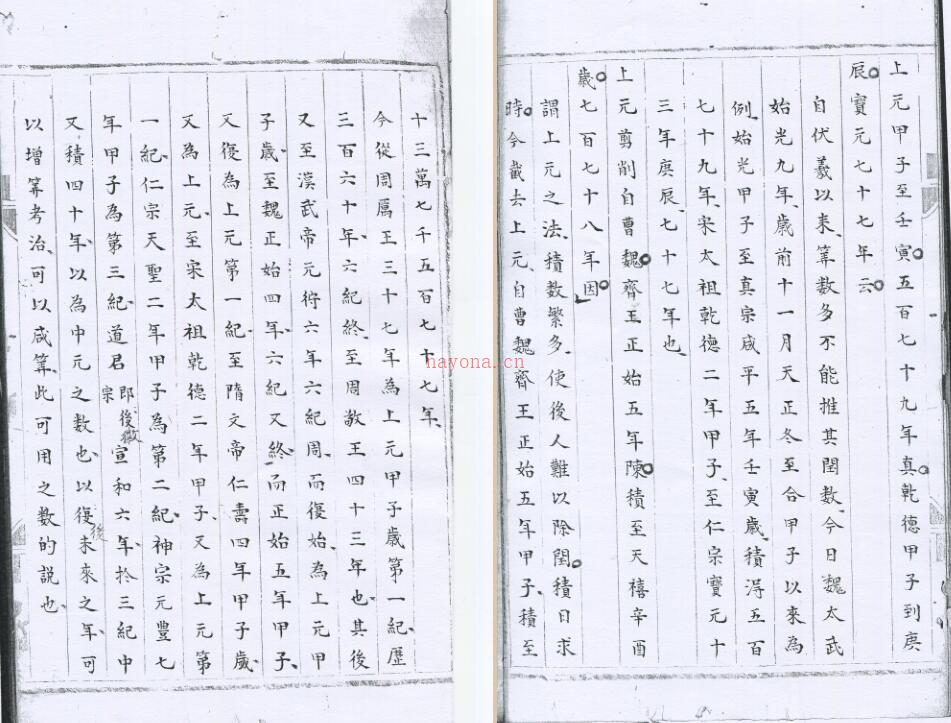 上元甲子至壬寅五百七十九年真乾德甲子到庚
辰寶元七十七年云
自伏羲以來筭數多不能推其閏數今日魏太武
始光九年歲前十一月天正冬至合甲子以來為
例始光甲子至真宗咸平五年壬寅歲積得五百
七十九年宋太祖乾德二年甲子至仁宗寶元十
三年庚辰七十七年也
上元剪削自曹魏齊王正始五年陳積至天禧辛酉
歲七百七十八年因
謂上元之法積數繁多使後人難以除閏積日求
時今截去上元自曹魏齊王正始五年甲子積至
十三萬七千五百七十七年
今從周厲王三十七年為上元甲子歲第一紀歷
三百六十年六紀終至周敬王四十三年也其後
又至漢武帝元狩六年六紀周而復始為上元甲
子歲至魏正始四年六紀又終而正始五年甲子
又復為上元第一紀至隋文帝仁壽四年甲子歲
又為上元至宋太祖乾德二年甲子又為上元第
一紀仁宗天聖二年甲子為第二紀神宗元豐七
年甲子為第三紀道君即後徽宗宣和六年於三紀中
又積四十年以為中元之數也以復未來之年可
後
以增筭考治可以咸筭此可用之數的說也
nayona.cn